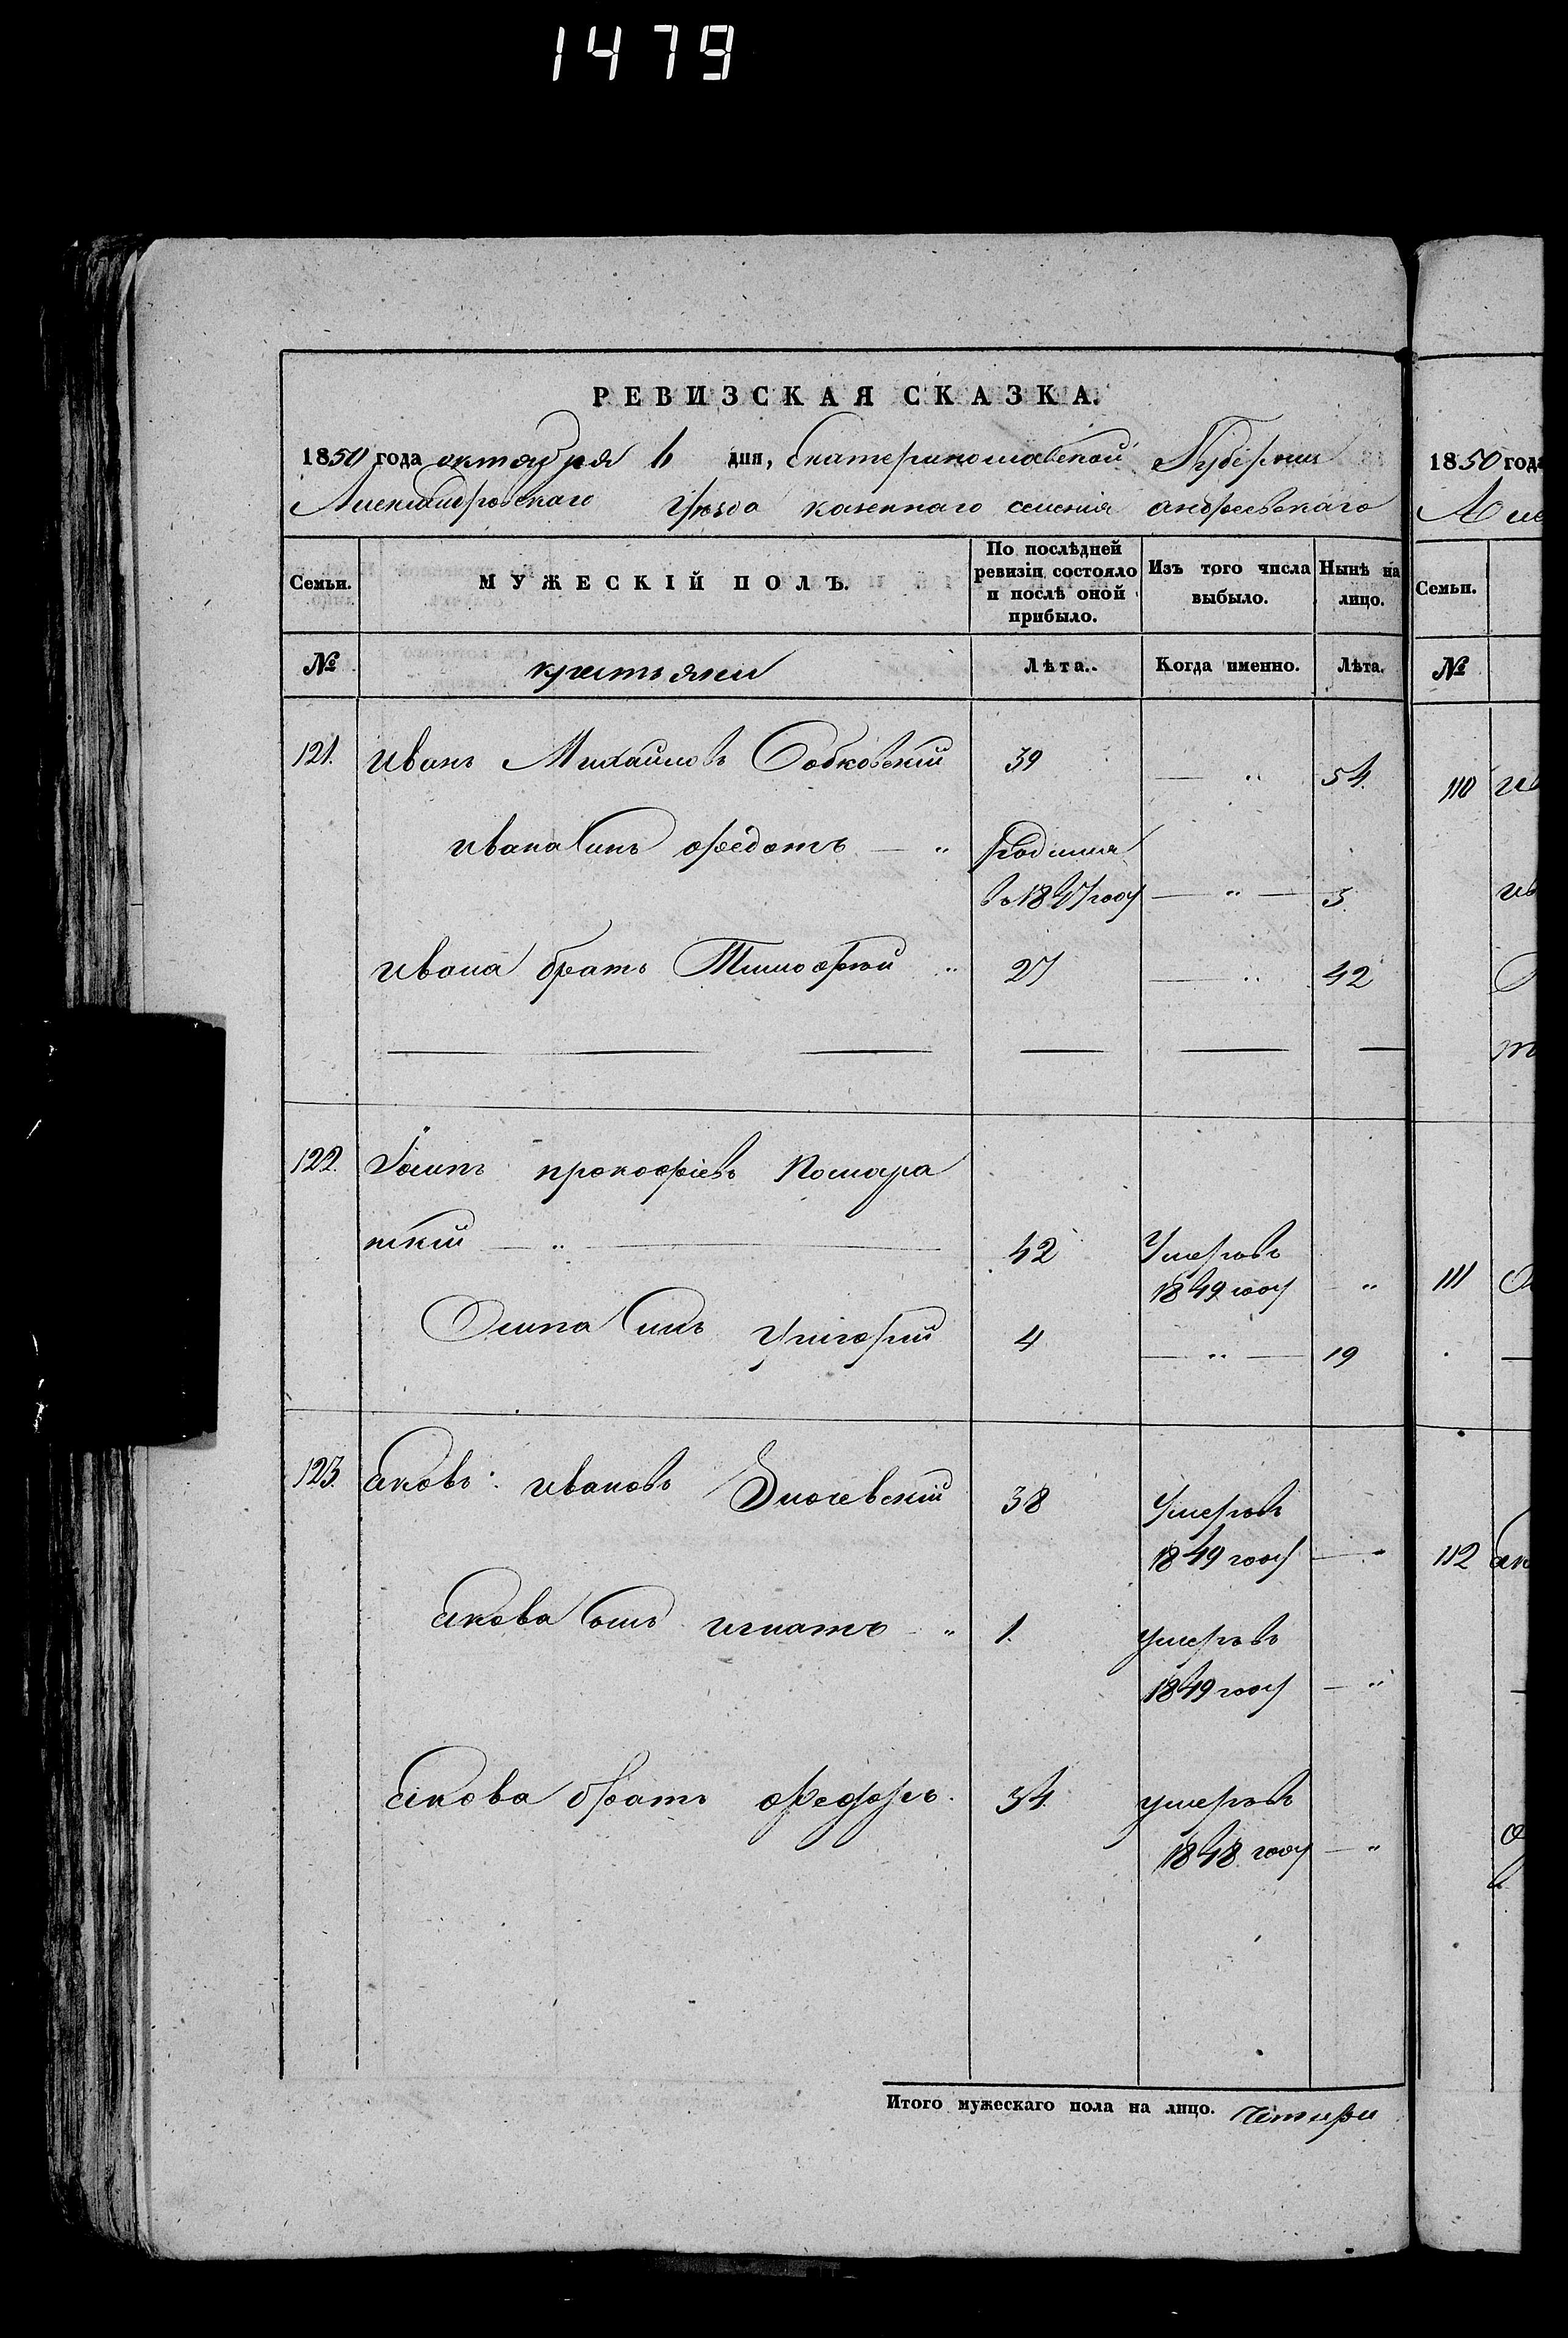 1479
РЕВИЗСКАЯ СКАЗКА.
1850 года октября 6 дня, Екатеринославской Губернии
Александровскаго Уѣзда казеннаго селенія андреевскаго
Семьи. МУЖЕСКІЙ ПОЛЪ. По послѣдней ревизіи состояло и послѣ оной прибыло. Изъ того числа выбыло. Нынѣ на лицо.
№ крестьяни Лѣта. Когда именно. Лѣта.
121. иванъ Михайловъ Собковскій 39 — " 54.
ивана сынъ федотъ — " родился
въ 1847 году — " — 3.
ивана братъ Тимофѣй " 27 — " 42
122. Іосипъ прокофіевъ
нскій — " — 42 Умеръ въ
1849 году "
Осипа сынъ григорий 4 — " — 19
123. яковъ ивановъ 38 Умеръ въ
1849 году —
якова сынъ игнатъ " 1. умеръ въ
1849 году — "
якова братъ федоръ. 34. умеръ въ
1848 году — "
Итого мужескаго пола на лицо. четыри
1850 года
Семьи.
№
110
111
112